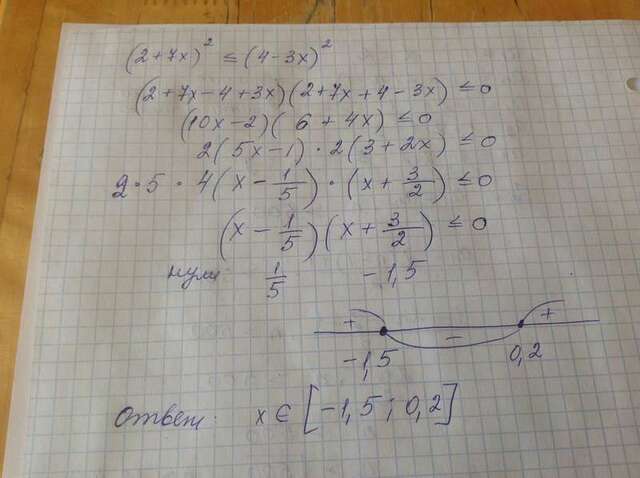 (2+7x)² ≤ (4-3x)²
(2+7x-4+3x)(2+7x+4-3x) ≤ 0
(10x-2)(6+4x) ≤ 0
2(5x-1)·2(3+2x) ≤ 0
2·5·4(x-1/5)·(x+3/2) ≤ 0
(x-1/5)(x+3/2) ≤ 0
нули: 1/5 -1,5
+ - +
-1,5 0,2
Ответ: x∈[-1,5; 0,2]